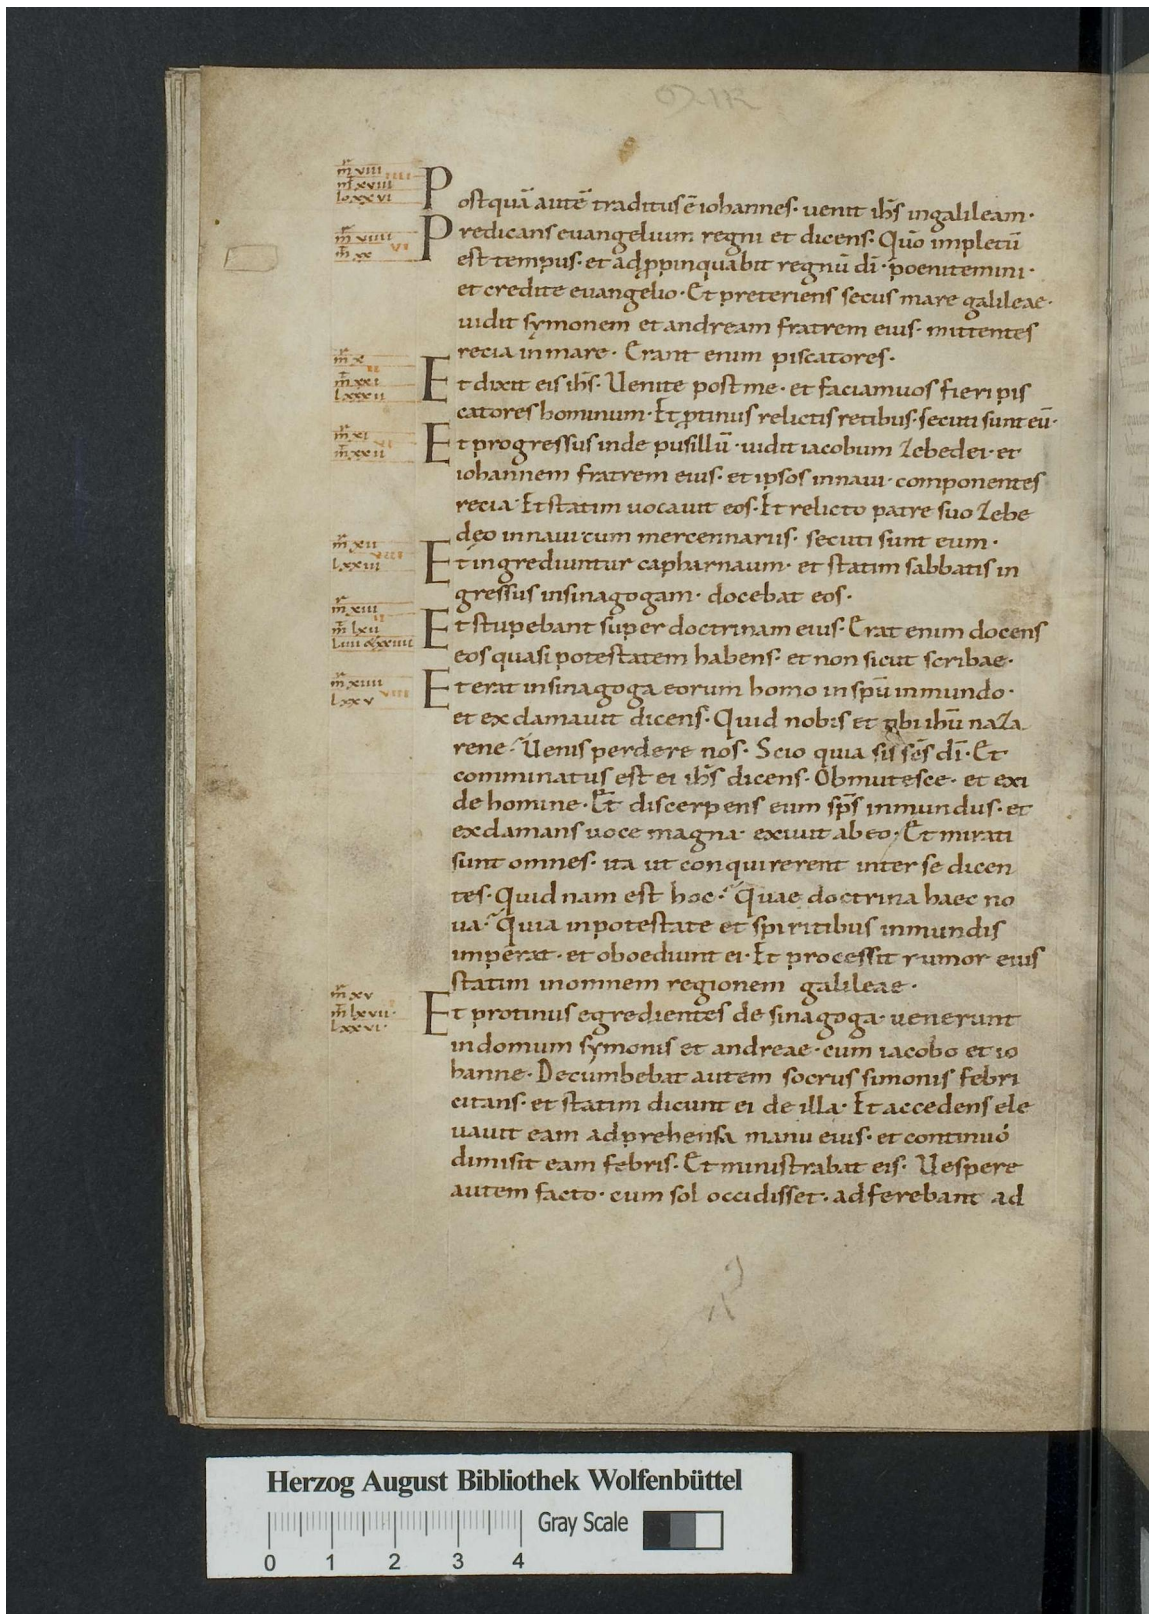 mr viii iiii
mt xviii
lo xxvi
Postquā autē traditus ē iohannes· uenit ihs̄ ingalileam·
mr viiii vi
mt xx
Predicans euangelium regni et dicens· Quō impletū
est tempus· et adp̱pinquabit regnū dī· poenitemini·
et credite euangelio· Et preteriens secus mare galileae·
uidit symonem et andream fratrem eius· mittentes
recia in mare· Erant enim piscatores·
mr x ii
mt xxi
l xxxii
Et dixit eis ihs̄· Uenite post me· et faciam uos fieri pis
catores hominum· Et ꝓtinus relictis retibus· secuti sunt eū·
mr xi vi
mt xxii
Et progressus inde pusillū· uidit iacobum zebedei· et
iohannem fratrem eius· et ipsos innaui· componentes
recia· Et statim uocauit eos· Et relicto patre suo zebe
deo innaui cum mercennariis· secuti sunt eum·
mr xii viii
l xxiii
Et ingrediuntur capharnaum· et statim sabbatis in
gressus insinagogam· docebat eos·
mr xiii ii
mt lxii
Et stupebant super doctrinam eius· Erat enim docens
eos quasi potestatem habens· et non sicut scribae·
mr xiiii viii
l xxv
Et erat insinagoga eorum homo in spū inmundo·
et exclamauit dicens· Quid nobis et tibi ihū naza
rene· Uenis perdere nos· Scio quia sis sc̄s dī· Et
comminatus est ei ihs̄ dicens· Obmutesce· et exi
de homine· Et discerpens eum sp̄s inmundus· et
exclamans uoce magna· exiuit ab eo· Et mirati
sunt omnes· ita ut conquirerent inter se dicen
tes· Quid nam est hoc· Quae doctrina haec no
ua· Quia inpotestate et spiritibus inmundis
imperat· et oboediunt ei· Et processit rumor eius
statim inomnem regionem galileae·
mr xv
mt lxvii·
l xxvi·
Et protinus egredientes de sinagoga· uenerunt
indomum symonis et andreae· cum iacobo et io
hanne· Decumbebat autem socrus simonis febri
citans· et statim dicunt ei de illa· Et accedens ele
uauit eam adprehensa manu eius· et continuó
dimisit eam febris· Et ministrabat eis· Uespere
autem facto· cum sol occidisset· adferebant ad
Herzog August Bibliothek Wolfenbüttel
Gray Scale
0 1 2 3 4